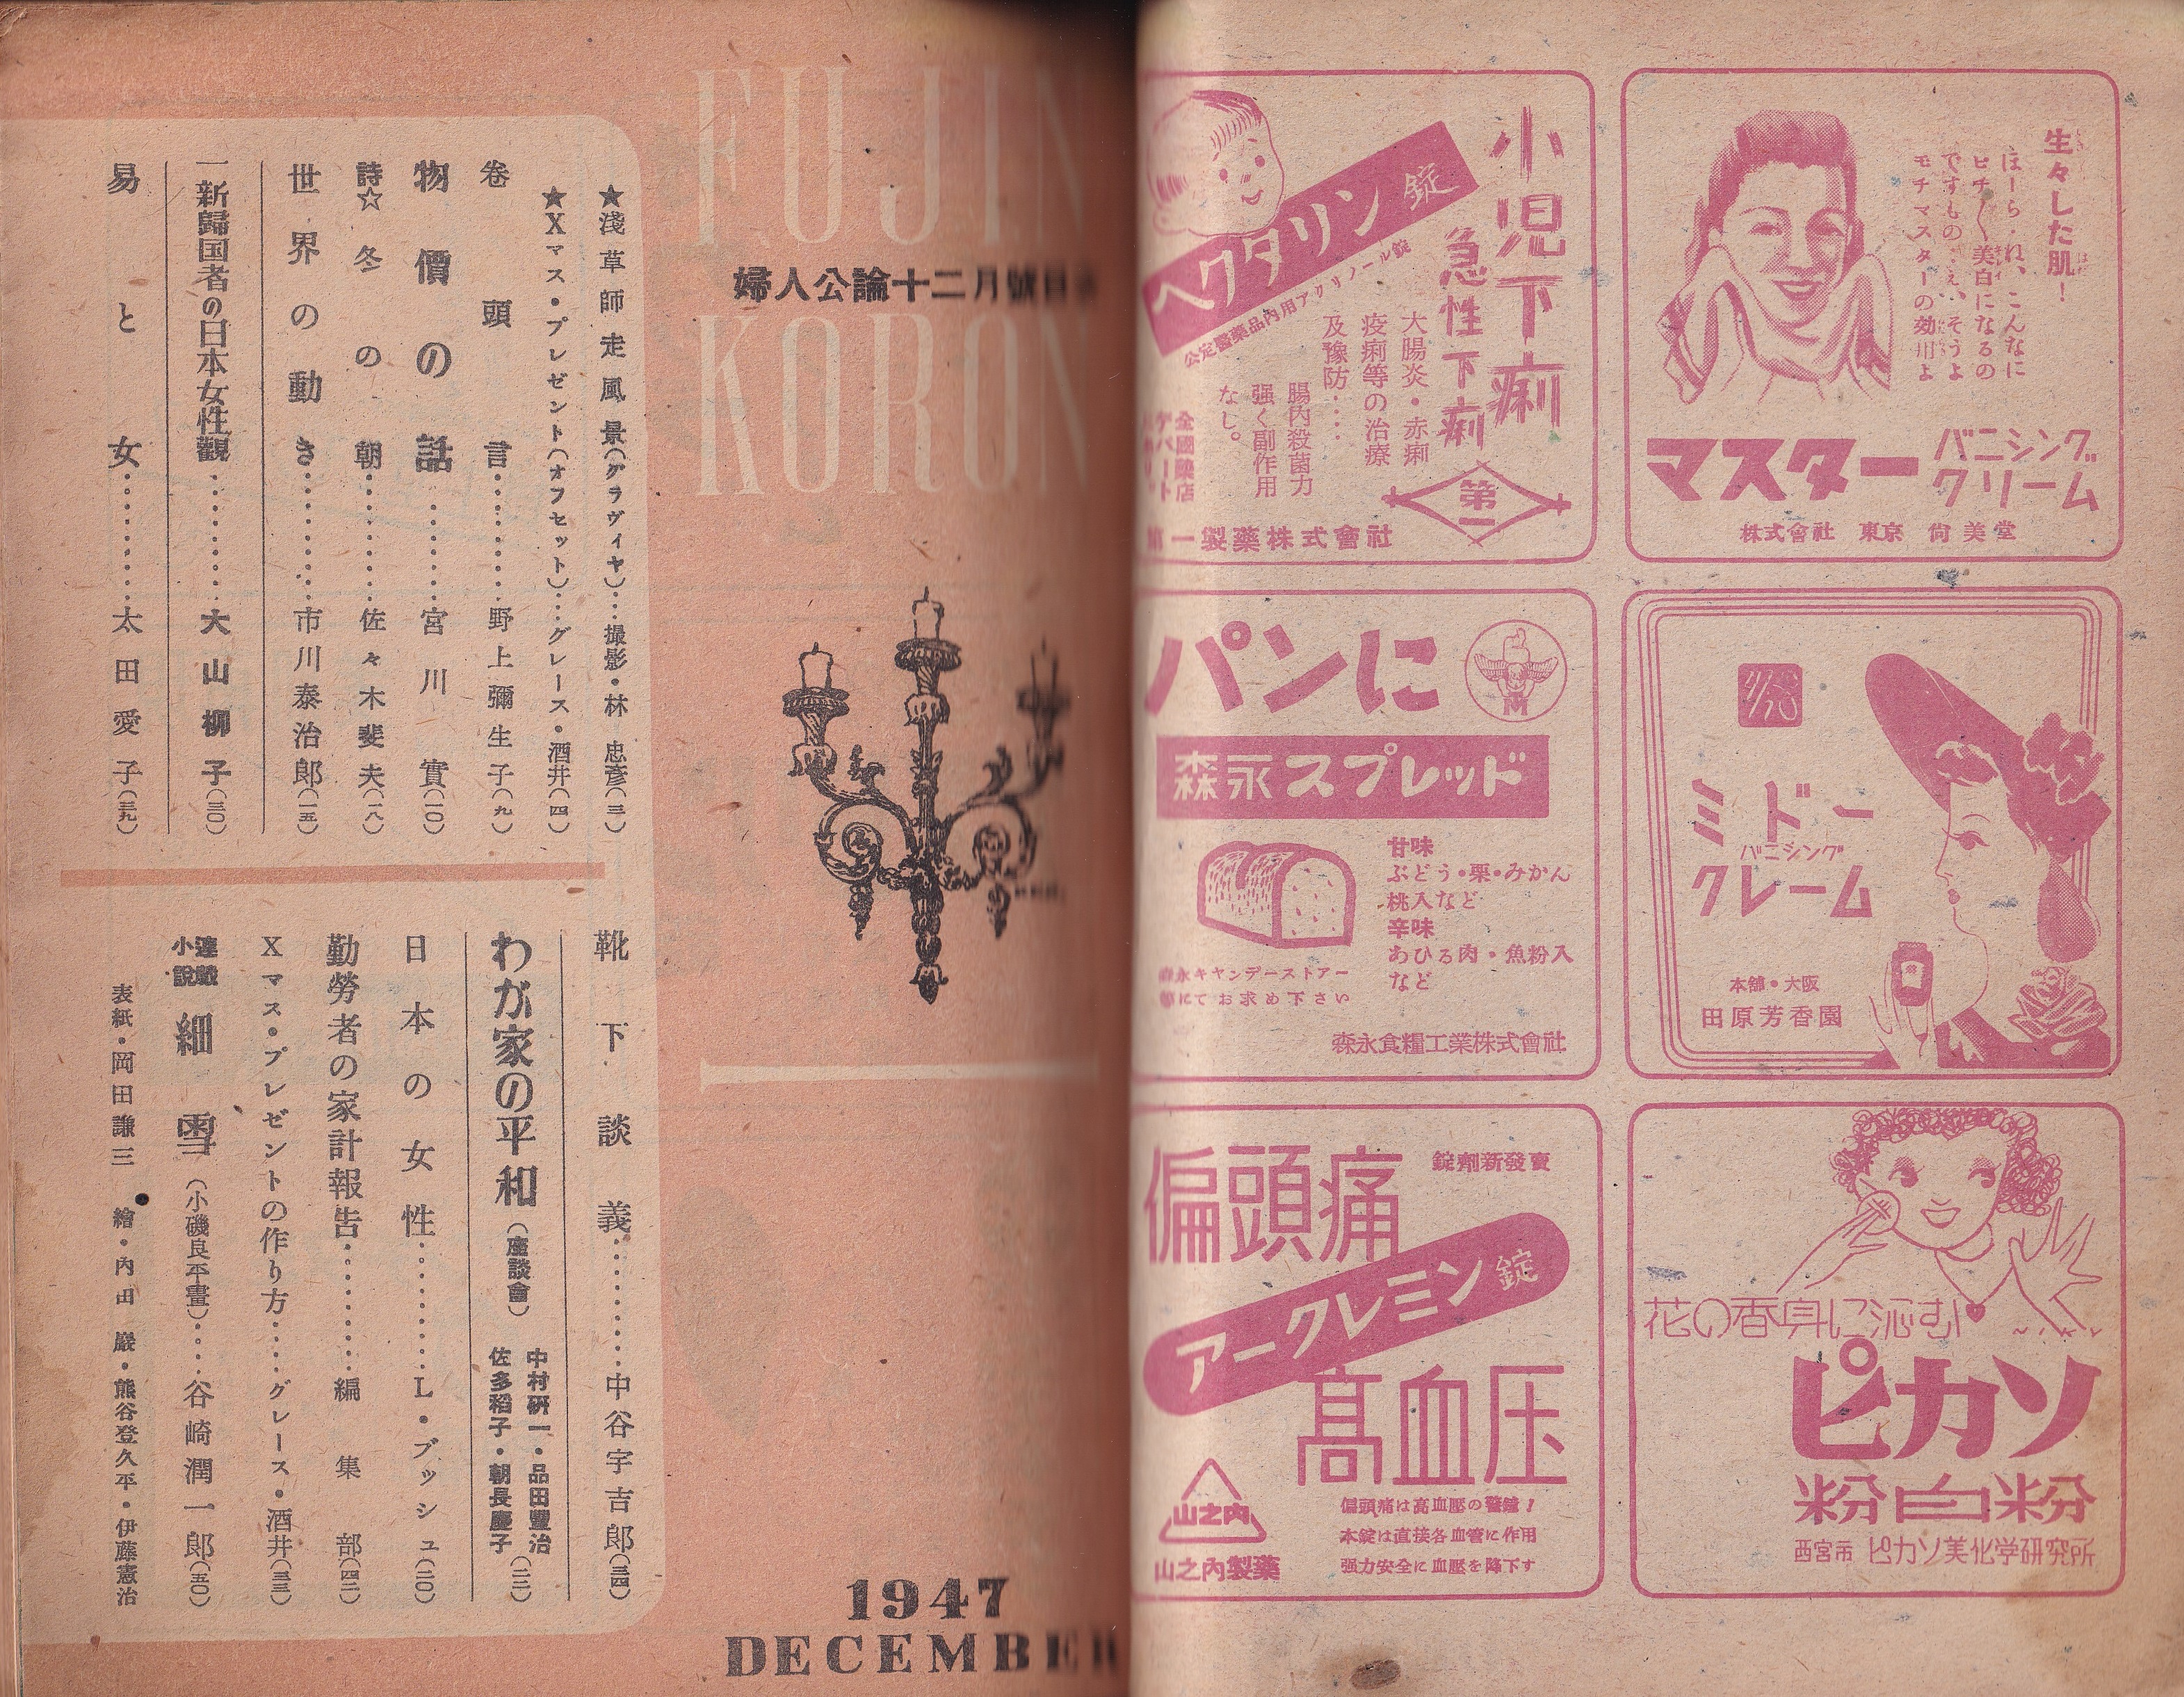 生々した肌！
ほーられ、こんなに
ピチ〱美白になるの
ですもの…え、そうよ
モチマスターの効用よ
マスター
バニシング
クリーム
株式會社 東京 尙美堂
小児下痢
急性下痢
ヘクタリン錠
公定醫藥品內用アクリノール錠
大腸炎・赤痢
疫痢等の治療
及豫防‥‥
腸內殺菌力
强く副作用
なし。
全國藥店
デパート
第一
第一製藥株式會社
ミドー
バニシング
クレーム
本舗・大阪
田原芳香園
パンに
森永スプレッド
甘味
ぶどう・栗・みかん
桃入など
辛味
あひる肉・魚粉入
など
森永キヤンデーストアー
等にてお求め下さい
森永食糧工業株式會社
花の香身に沁む
ピカソ
粉白粉
西宮市 ピカソ美化学研究所
錠劑新發賣
偏頭痛
アークレミン錠
高血圧
偏頭痛は高血壓の警鐘！
本錠は直接各血管に作用
强力安全に血壓を降下す
山之内
山之內製藥
FUJIN
KORON
婦人公論十二月號目
1947
DECEMBER
★淺草師走風景（グラヴィヤ）…撮影・林 忠彥（三）
★Xマス・プレゼント（オフセット）…グレース・酒井（四）
卷頭言…………野上彌生子（九）
物價の話…………宮川 實（一〇）
詩☆冬の朝…………佐々木斐夫（一八）
世界の動き…………市川泰治郎（一五）
一新歸国者の日本女性觀…………大山柳子（三〇）
易と女…………太田愛子（三九）
靴下談義…………中谷宇吉郎（三四）
わが家の平和（座談會）
中村研一・品田豐治
佐多稻子・朝長慶子（二二）
日本の女性…………L・ブッシュ（二〇）
勤勞者の家計報告…………編集部（四二）
Xマス・プレゼントの作り方……グレース・酒井（三三）
連載
小說
細雪（小磯良平畫）……谷崎潤一郎（五〇）
表紙・岡田謙三 繪・內田 巖・熊谷登久平・伊藤憲治